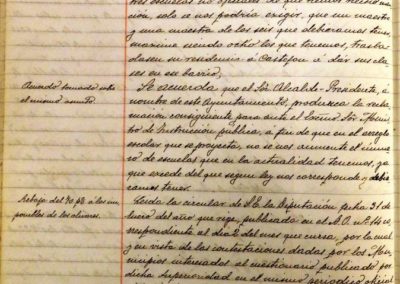 tres escuelas no
ción, solo se nos podría exigir, que un maestro
y una maestra de los seis que debíamos tener,
máxime siendo ocho los que tenemos, trasla
dasen su residencia á Castejon á dar sus cla
ses en su barrio.
Acuerdo tomado sobre
el mismo asunto.
Se acuerda que el Sór Alcalde-Presidente, á
nombre de este Ayuntamiento, produzca la recla
mación consiguiente para ante el Excmo Sór Minis
tro de Instrucción publica, á fin de que en el arreglo
escolar que se proyecta, no se nos aumente el núme
ro de escuelas que en la actualidad tenemos, ya
que excede del que segun ley nos corresponde y debié
ramos tener.
Rebaja del 40 p% á los im
ponibles de los olivares.
Leida la circular de S.E. la Diputación fecha 31 de
del año que rige, publicada en el B.O. nº 14 co
rrespondiente al dia 2 del mes que cursa, por la cual
y en vista de las contestaciones dadas por los Mu
nicipios interesados al cuestionario publicado por
dicha Superioridad en el mismo periodico oficial